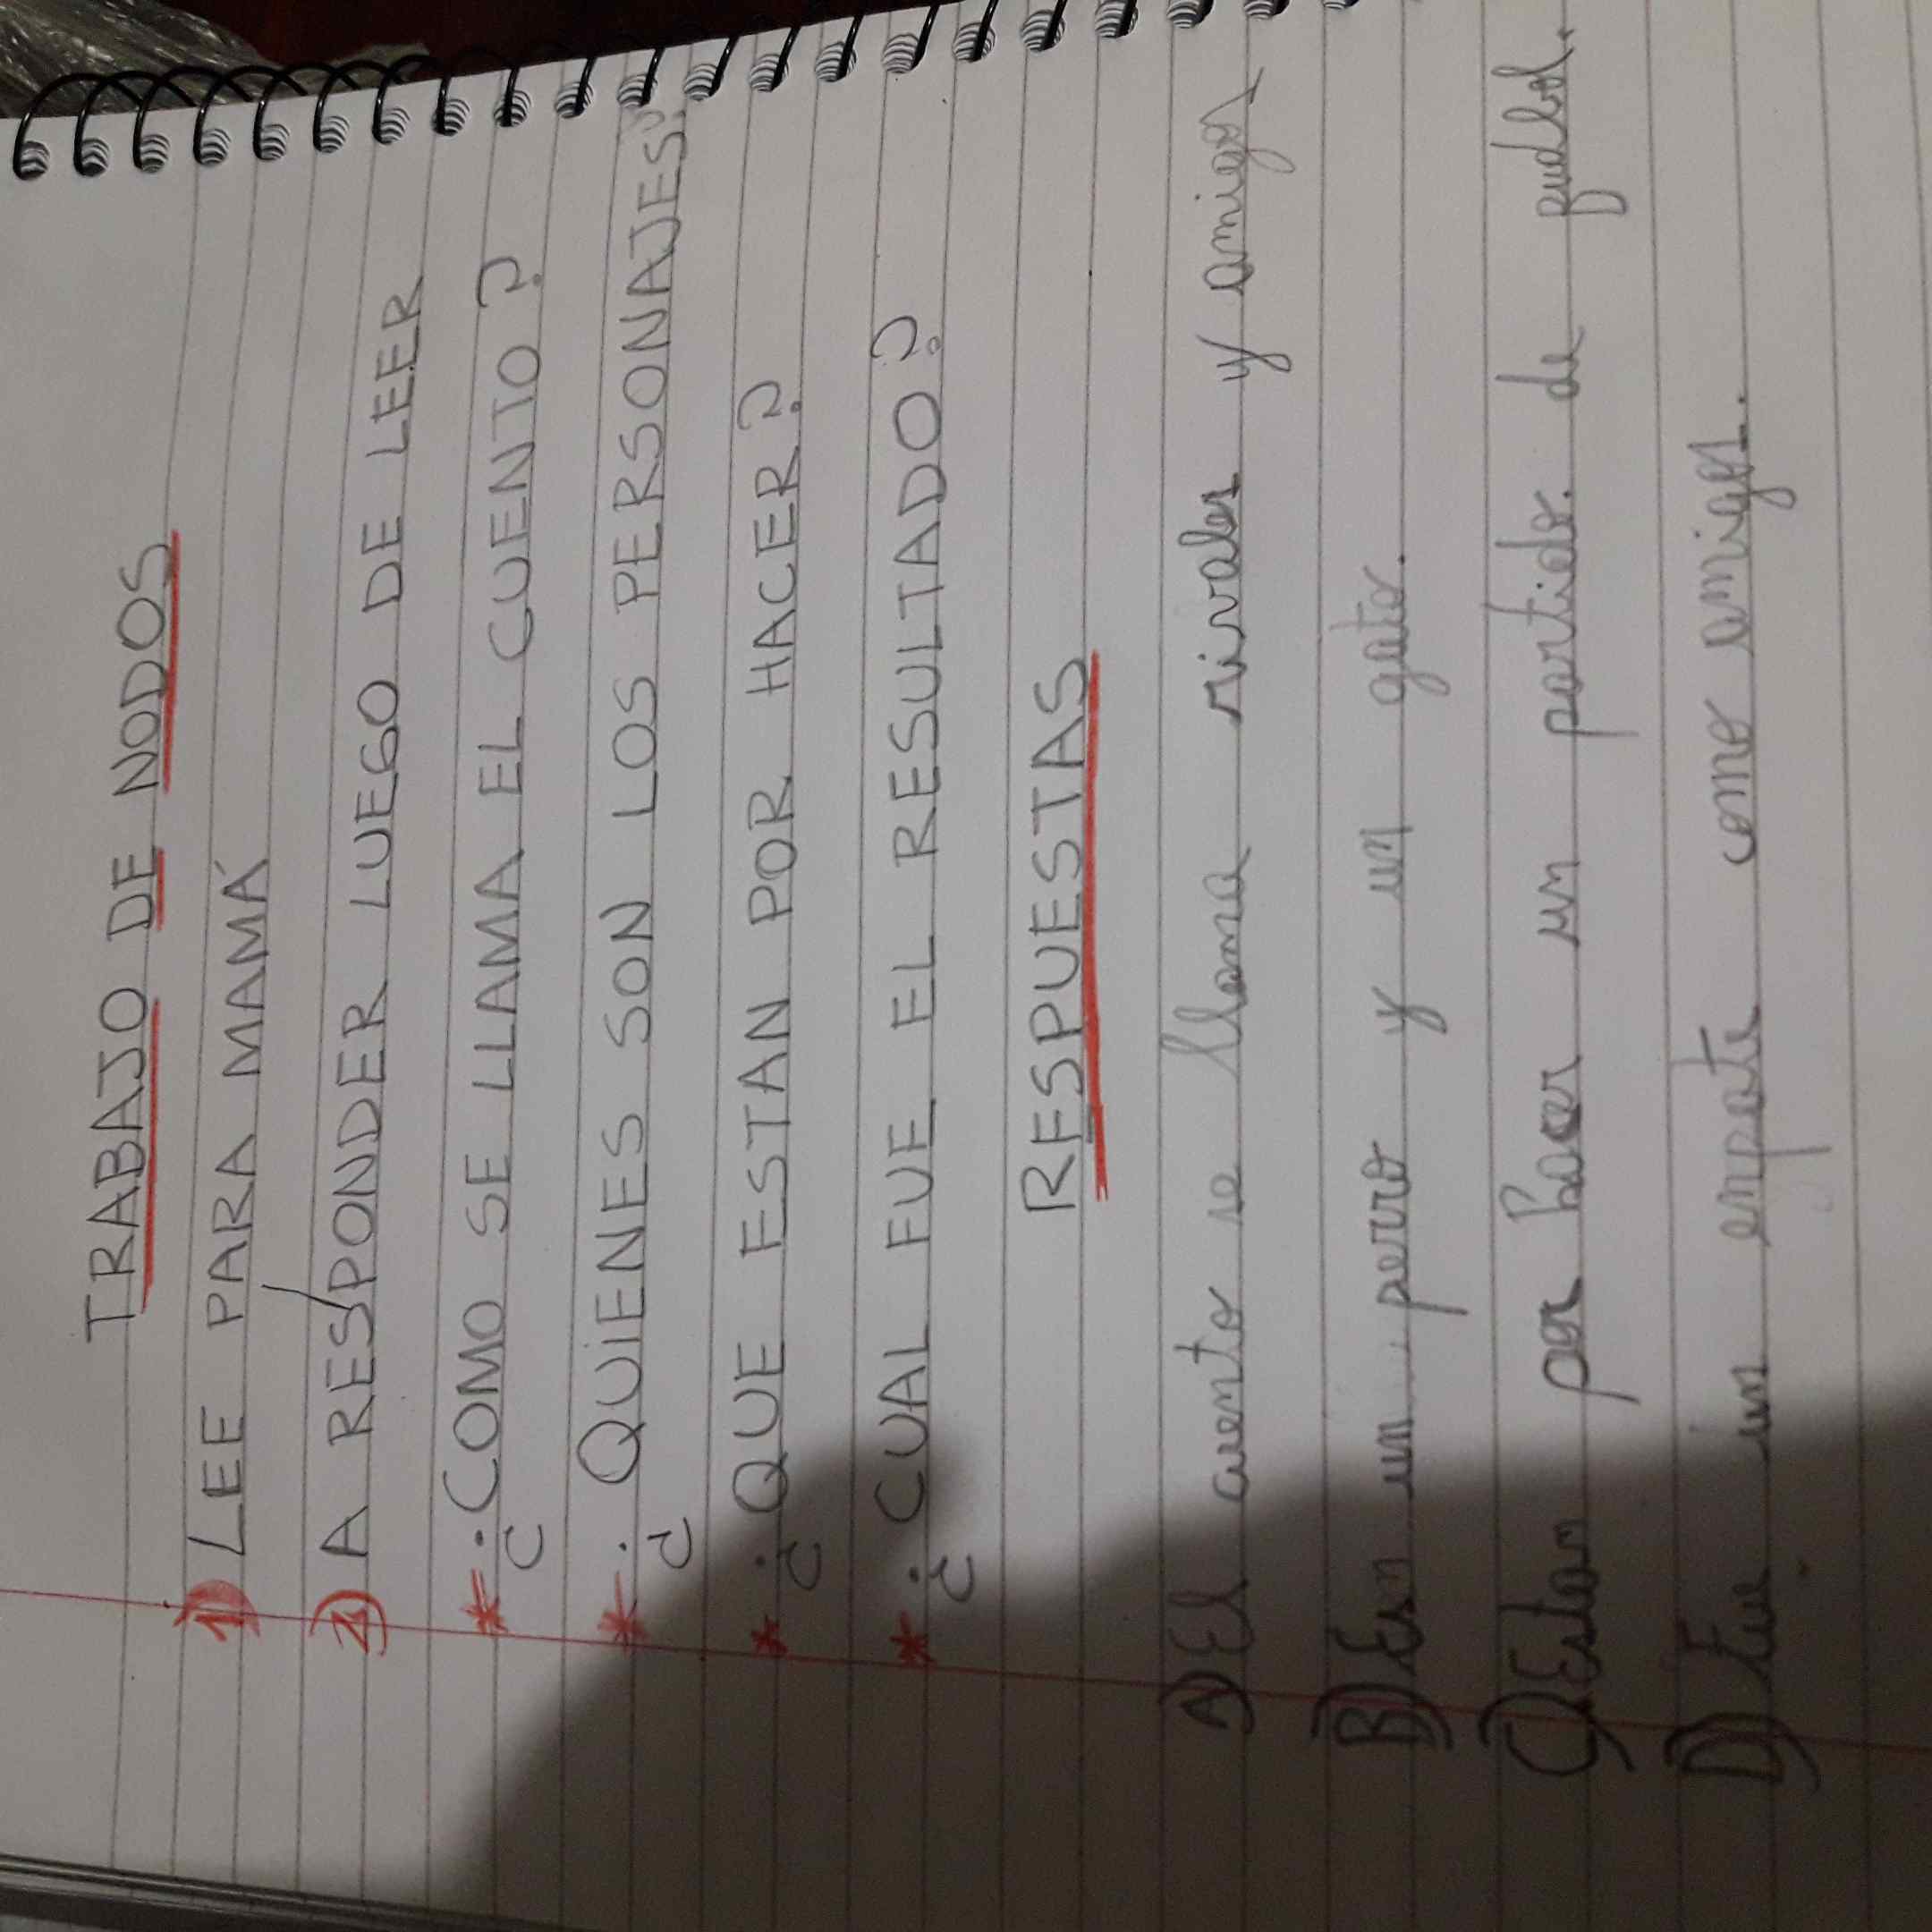 TRABAJO DE NODOS
1) LEE PARA MAMÁ
2) A RESPONDER LUEGO DE LEER
* ¿COMO SE LLAMA EL CUENTO?
* ¿QUIENES SON LOS PERSONAJES?
* ¿QUE ESTAN POR HACER?
* ¿CUAL FUE EL RESULTADO?
RESPUESTAS
A) El cuento se llama rivales y amigos
B) Esn un perro y un gato.
C) Estan por hacer un partido. de pudbol.
D) Fue un enpate como emigos.